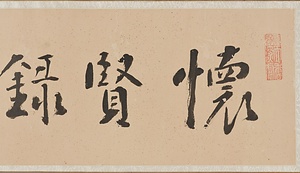 懷賢錄